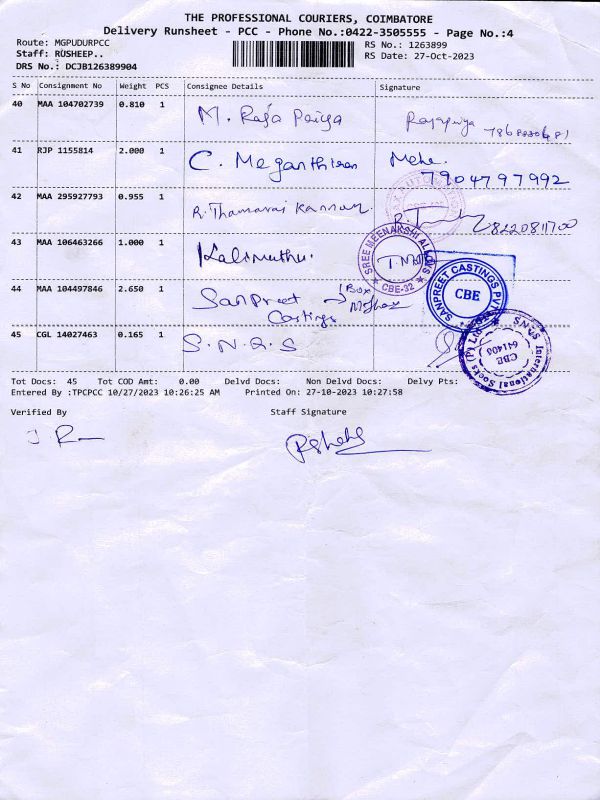 THE PROFESSIONAL COURIERS, COIMBATORE
Delivery Runsheet - PCC - Phone No.:0422-3505555 - Page No.:4
Route: MGPUDURPCC
RS No.: 1263899
Staff: RUSHEEP..
RS Date: 27-Oct-2023
DRS No.: DCJB126389904
S No Consignment No Weight PCS Consignee Details Signature
40 MAA 104702739 0.810 1 M. Raja Paiya
41 RJP 1155814 2.000 1 C. Meganthiran Mehe. 7904797992
42 MAA 295927793 0.955 1 R. Thamarai Kannan 8220811700
43 MAA 106463266 1.000 1 Kalimuthu.
SREE MEENAKSHI ALLOYS
CBE-32
44 MAA 104497846 2.650 1 Sanpreet Castings 1 Box
SANPREET CASTINGS PVT
CBE
45 CGL 14027463 0.165 1 S.N.Q.S
SNQS International Socks (P) Ltd
CBE
641403
Tot Docs: 45 Tot COD Amt: 0.00 Delvd Docs: Non Delvd Docs: Delvy Pts:
Entered By :TPCPCC 10/27/2023 10:26:25 AM Printed On: 27-10-2023 10:27:58
Verified By Staff Signature